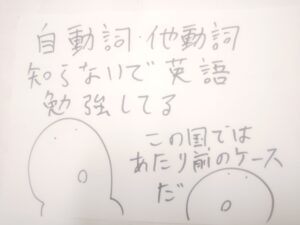 自動詞・他動詞
知らないで英語
勉強してる
この国では
あたり前のケース
だ